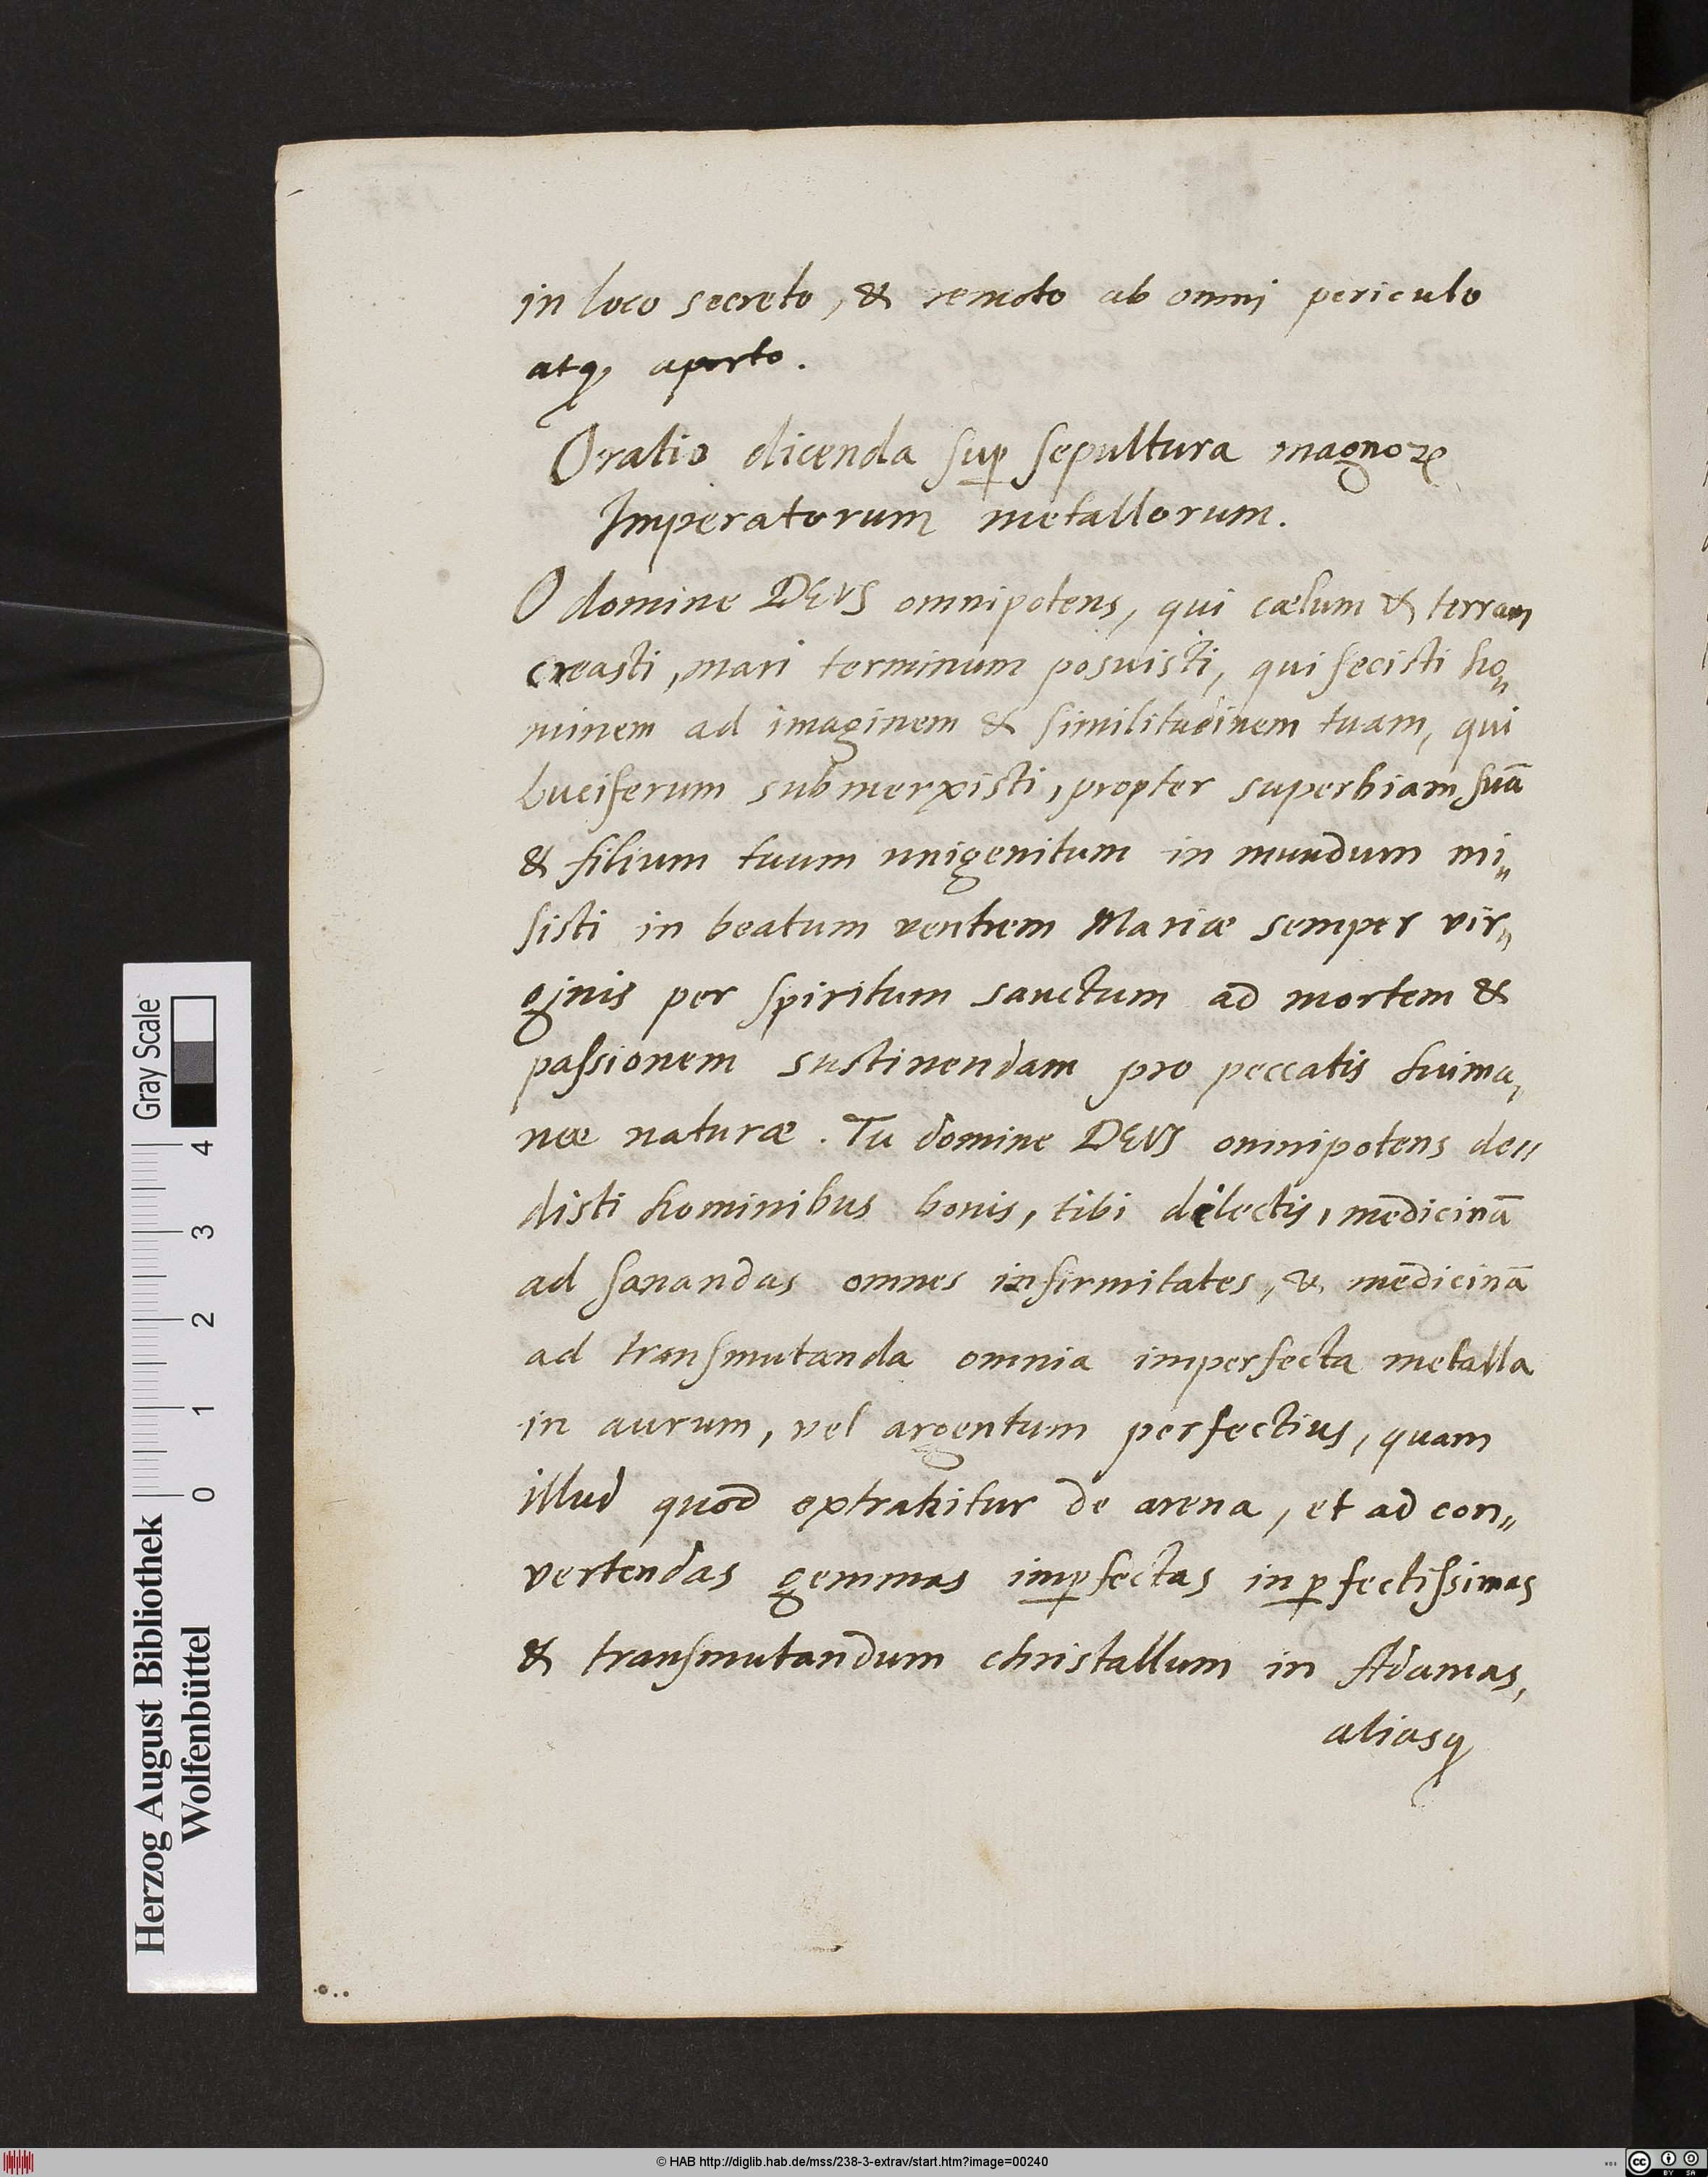 in loco secreto, & remoto ab omni periculo
atq₃ aperto.
Oratio dicenda sup̱ sepultura magnoꝝ
Imperatorum metallorum.
O domine DEUS omnipotens, qui cælum & terram
creasti, mari terminum posuisti, qui fecisti ho„
minem ad imaginem & similitudinem tuam, qui
Luciferum submerxisti, propter superbiam suā
& filium tuum unigenitum in mundum mi„
sisti in beatum ventrem Mariæ semper vir„
ginis per spiritum sanctum ad mortem &
passionem sustinendam pro peccatis huma„
næ naturæ. Tu domine DEUS omnipotens de„
disti hominibus bonis, tibi dilectis, medicinā
ad sanandas omnes infirmitates, & medicinā
ad transmutanda omnia imperfecta metalla
in aurum, vel argentum perfectius, quam
illud quod extrahitur de arena, et ad con„
vertendas gemmas imꝑfectas in ꝑfectissimas
& transmutandum christallum in Adamas,
aliasq₃
Herzog August Bibliothek
Wolfenbüttel
Gray Scale
0 1 2 3 4
© HAB http://diglib.hab.de/mss/238-3-extrav/start.htm?image=00240